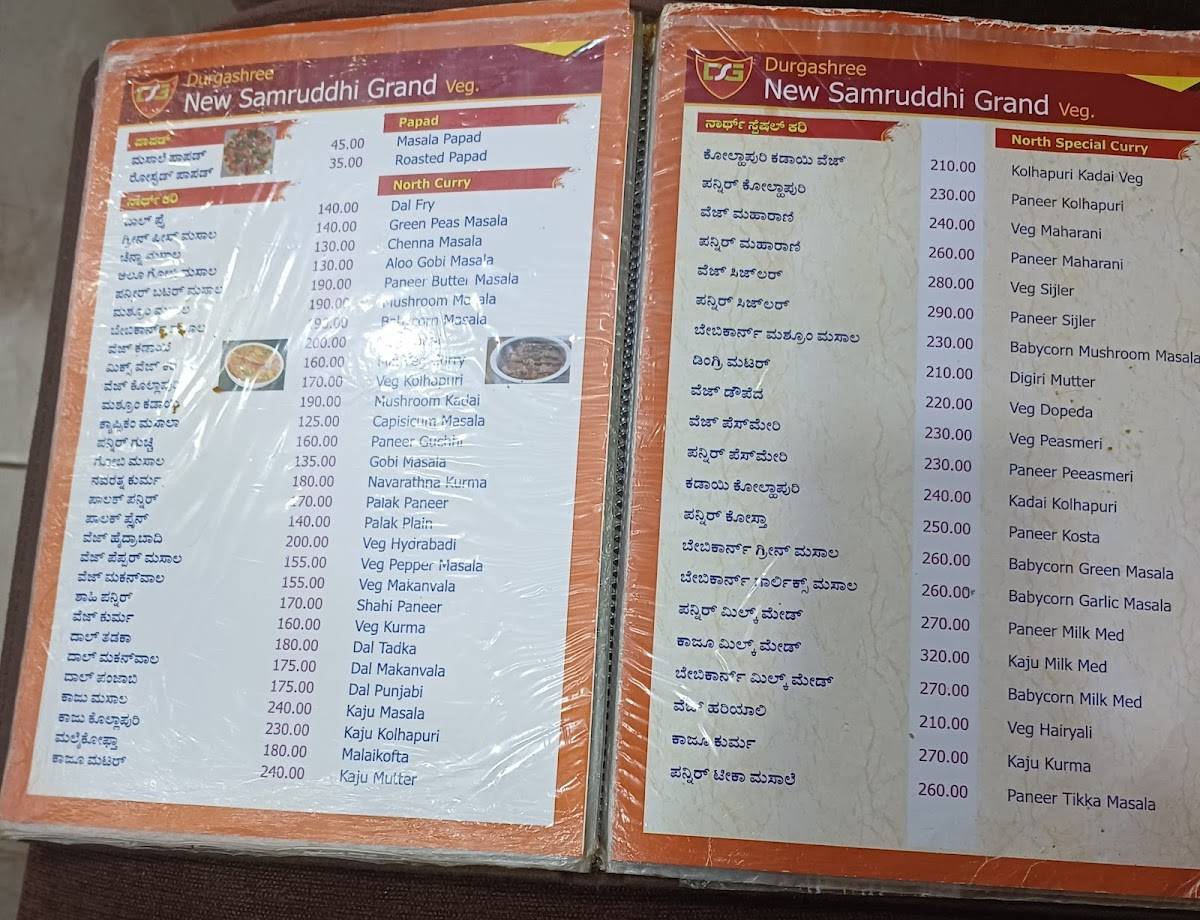 Durgashree
New Samruddhi Grand Veg.
ಪಾಪಡ್ Papad
ಮಸಾಲೆ ಪಾಪಡ್ 45.00 Masala Papad
ರೋಸ್ಟಡ್ ಪಾಪಡ್ 35.00 Roasted Papad
ನಾರ್ಥ್ ಕರಿ North Curry
140.00 Dal Fry
ಗ್ರೀನ್ ಪೀಸ್ ಮಸಾಲ 140.00 Green Peas Masala
ಚೆನ್ನಾ ಮಸಾಲ 130.00 Chenna Masala
ಆಲೂ ಗೋಬಿ ಮಸಾಲ 130.00 Aloo Gobi Masala
ಪನ್ನೀರ್ ಬಟರ್ ಮಸಾಲ 190.00 Paneer Butter Masala
ಮಶ್ರೂಂ ಮಸಾಲ 190.00 Mushroom Masala
ಬೇಬಿಕಾರ್ನ್ Babycorn Masala
ವೆಜ್ ಕಡಾಯಿ 200.00
ಮಿಕ್ಸ್ ವೆಜ್ 160.00 Curry
ವೆಜ್ ಕೊಲ್ಲಾಪುರಿ 170.00 Veg Kolhapuri
ಮಶ್ರೂಂ ಕಡಾಯಿ 190.00 Mushroom Kadai
ಕ್ಯಾಪ್ಸಿಕಂ ಮಸಾಲಾ 125.00 Capisicum Masala
ಪನ್ನಿರ್ ಗುಚ್ಚಿ 160.00 Paneer Guchhi
ಗೋಬಿ ಮಸಾಲ 135.00 Gobi Masala
ನವರತ್ನ ಕುರ್ಮ 180.00 Navarathna Kurma
ಪಾಲಕ್ ಪನ್ನಿರ್ 170.00 Palak Paneer
ಪಾಲಕ್ ಪ್ಲೈನ್ 140.00 Palak Plain
ವೆಜ್ ಹೈದ್ರಾಬಾದಿ 200.00 Veg Hydrabadi
ವೆಜ್ ಪೆಪ್ಪರ್ ಮಸಾಲ 155.00 Veg Pepper Masala
ವೆಜ್ ಮಕನ್‌ವಾಲ 155.00 Veg Makanvala
ಶಾಹಿ ಪನ್ನಿರ್ 170.00 Shahi Paneer
ವೆಜ್ ಕುರ್ಮ 160.00 Veg Kurma
ದಾಲ್ ತಡಕಾ 180.00 Dal Tadka
ದಾಲ್ ಮಕನ್‌ವಾಲ 175.00 Dal Makanvala
ದಾಲ್ ಪಂಜಾಬಿ 175.00 Dal Punjabi
ಕಾಜು ಮಸಾಲ 240.00 Kaju Masala
ಕಾಜು ಕೊಲ್ಲಾಪುರಿ 230.00 Kaju Kolhapuri
ಮಲೈಕೋಫ್ತಾ 180.00 Malaikofta
ಕಾಜೂ ಮಟರ್ 240.00 Kaju Mutter
Durgashree
New Samruddhi Grand Veg.
ನಾರ್ಥ್ ಸ್ಪೆಷಲ್ ಕರಿ North Special Curry
ಕೋಲ್ಹಾಪುರಿ ಕಡಾಯಿ ವೆಜ್ 210.00 Kolhapuri Kadai Veg
ಪನ್ನಿರ್ ಕೋಲ್ಹಾಪುರಿ 230.00 Paneer Kolhapuri
ವೆಜ್ ಮಹಾರಾಣಿ 240.00 Veg Maharani
ಪನ್ನಿರ್ ಮಹಾರಾಣಿ 260.00 Paneer Maharani
ವೆಜ್ ಸಿಜ್‌ಲರ್ 280.00 Veg Sijler
ಪನ್ನಿರ್ ಸಿಜ್‌ಲರ್ 290.00 Paneer Sijler
ಬೇಬಿಕಾರ್ನ್ ಮಶ್ರೂಂ ಮಸಾಲ 230.00 Babycorn Mushroom Masala
ಡಿಂಗ್ರಿ ಮಟರ್ 210.00 Digiri Mutter
ವೆಜ್ ಡೌಪೆದ 220.00 Veg Dopeda
ವೆಜ್ ಪೆಸ್‌ಮೇರಿ 230.00 Veg Peasmeri
ಪನ್ನಿರ್ ಪೆಸ್‌ಮೇರಿ 230.00 Paneer Peeasmeri
ಕಡಾಯಿ ಕೋಲ್ಹಾಪುರಿ 240.00 Kadai Kolhapuri
ಪನ್ನಿರ್ ಕೋಸ್ತಾ 250.00 Paneer Kosta
ಬೇಬಿಕಾರ್ನ್ ಗ್ರೀನ್ ಮಸಾಲ 260.00 Babycorn Green Masala
ಬೇಬಿಕಾರ್ನ್ ಗಾರ್ಲಿಕ್ಸ್ ಮಸಾಲ 260.00 Babycorn Garlic Masala
ಪನ್ನಿರ್ ಮಿಲ್ಕ್ ಮೇಡ್ 270.00 Paneer Milk Med
ಕಾಜೂ ಮಿಲ್ಕ್ ಮೇಡ್ 320.00 Kaju Milk Med
ಬೇಬಿಕಾರ್ನ್ ಮಿಲ್ಕ್ ಮೇಡ್ 270.00 Babycorn Milk Med
ವೆಜ್ ಹರಿಯಾಲಿ 210.00 Veg Hairyali
ಕಾಜೂ ಕುರ್ಮ 270.00 Kaju Kurma
ಪನ್ನಿರ್ ಟೀಕಾ ಮಸಾಲೆ 260.00 Paneer Tikka Masala